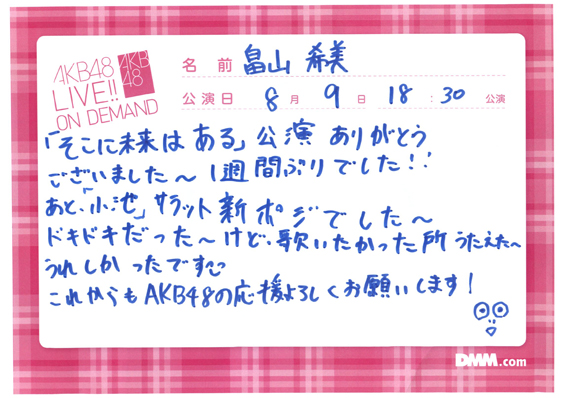 AKB48
LIVE!!
ON DEMAND
AKB
48
名前 畠山 希美
公演日 8月9日 18:30 公演
「そこに未来は ある」公演 ありがとう
ございました〜 1週間ぶりでした!!
あと、「小池」サラット 新ポジでした〜
ドキドキだった〜けど、歌いたかった所 うたえた〜
うれしかったです
これからも AKB48の応援よろしくお願いします!
DMM.com